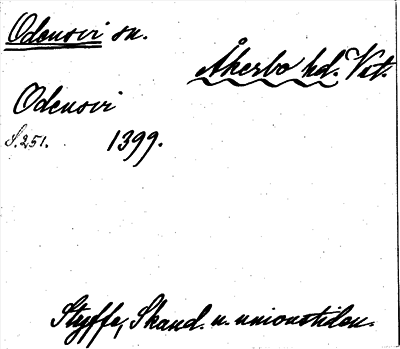 Odensvi sn.
Åkerbo hd. Vst.
Odensvi
S. 251. 1399.
Styffe, Skand. u. unionstiden.